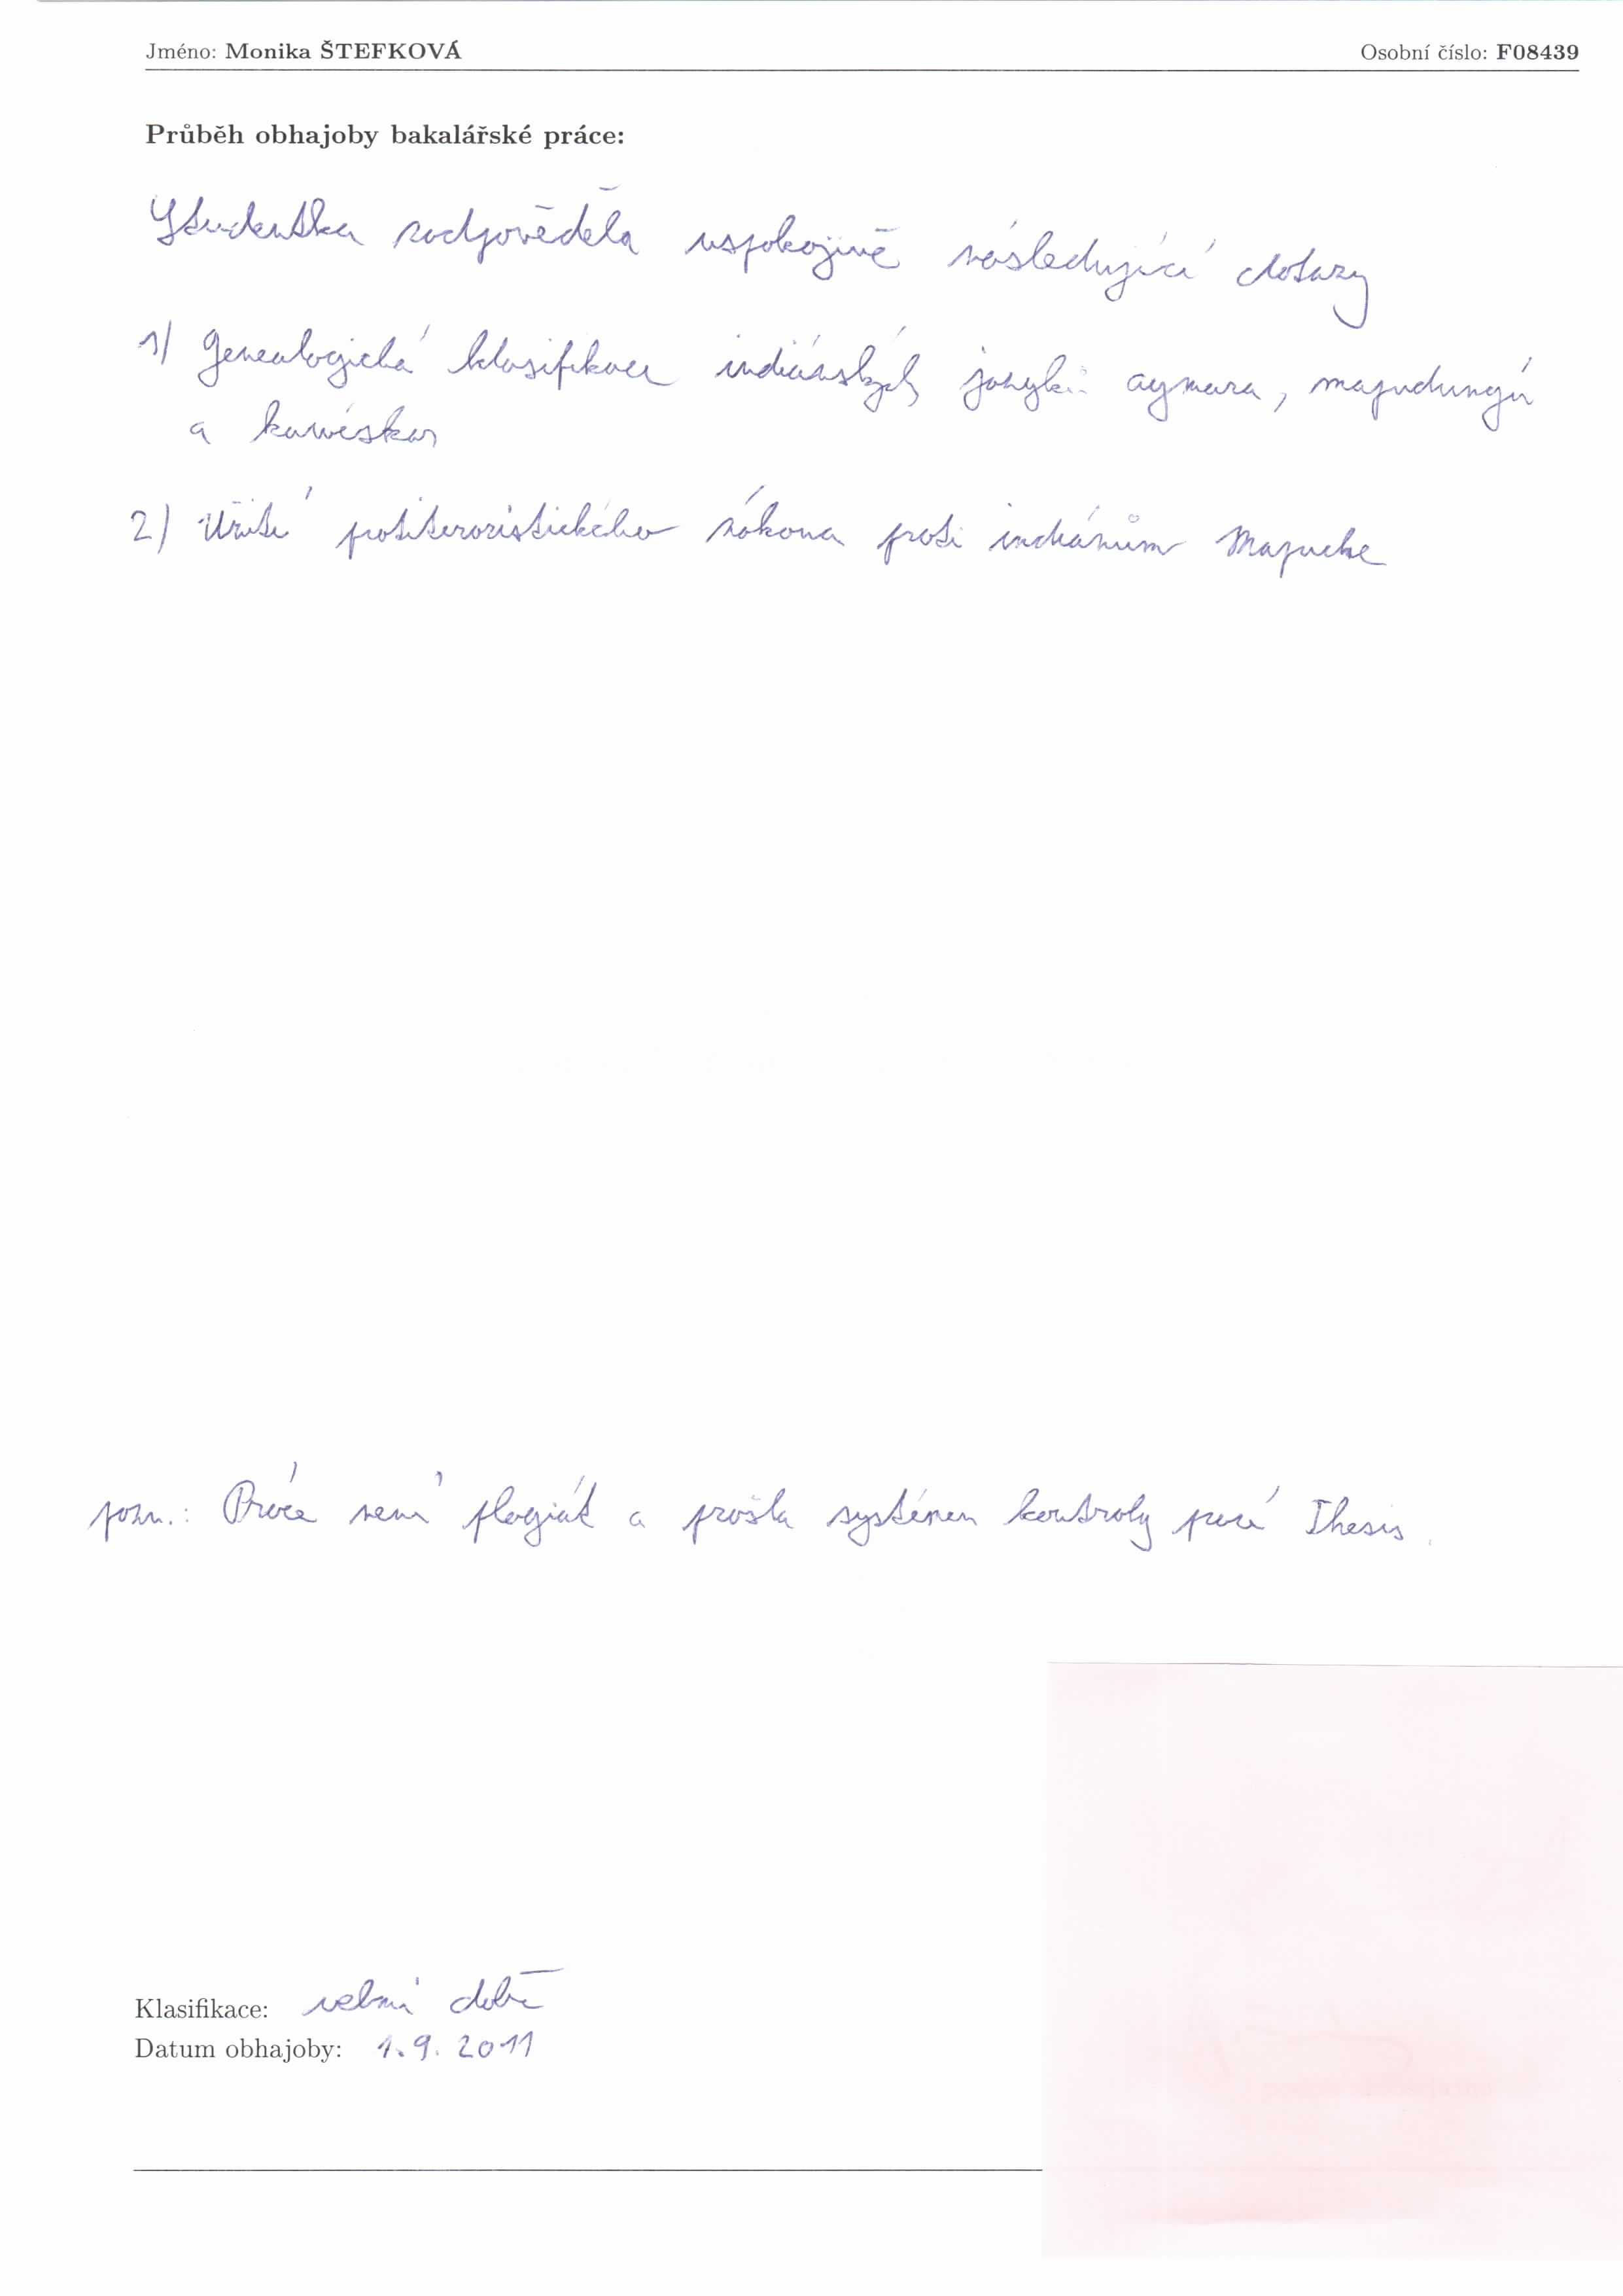 Jméno: Monika ŠTEFKOVÁ Osobní číslo: F08439
Průběh obhajoby bakalářské práce:
Studentka zodpověděla uspokojivě následující dotazy
1) Genealogická klasifikace indiánských jazyků aymara, mapudungú
a kawéskar
2) Užití protiteroristického zákona proti indiánům Mapuche
pozn.: Práce není plagiát a prošla systémem kontroly prací Thesis.
Klasifikace: velmi dobře
Datum obhajoby: 1.9. 2011